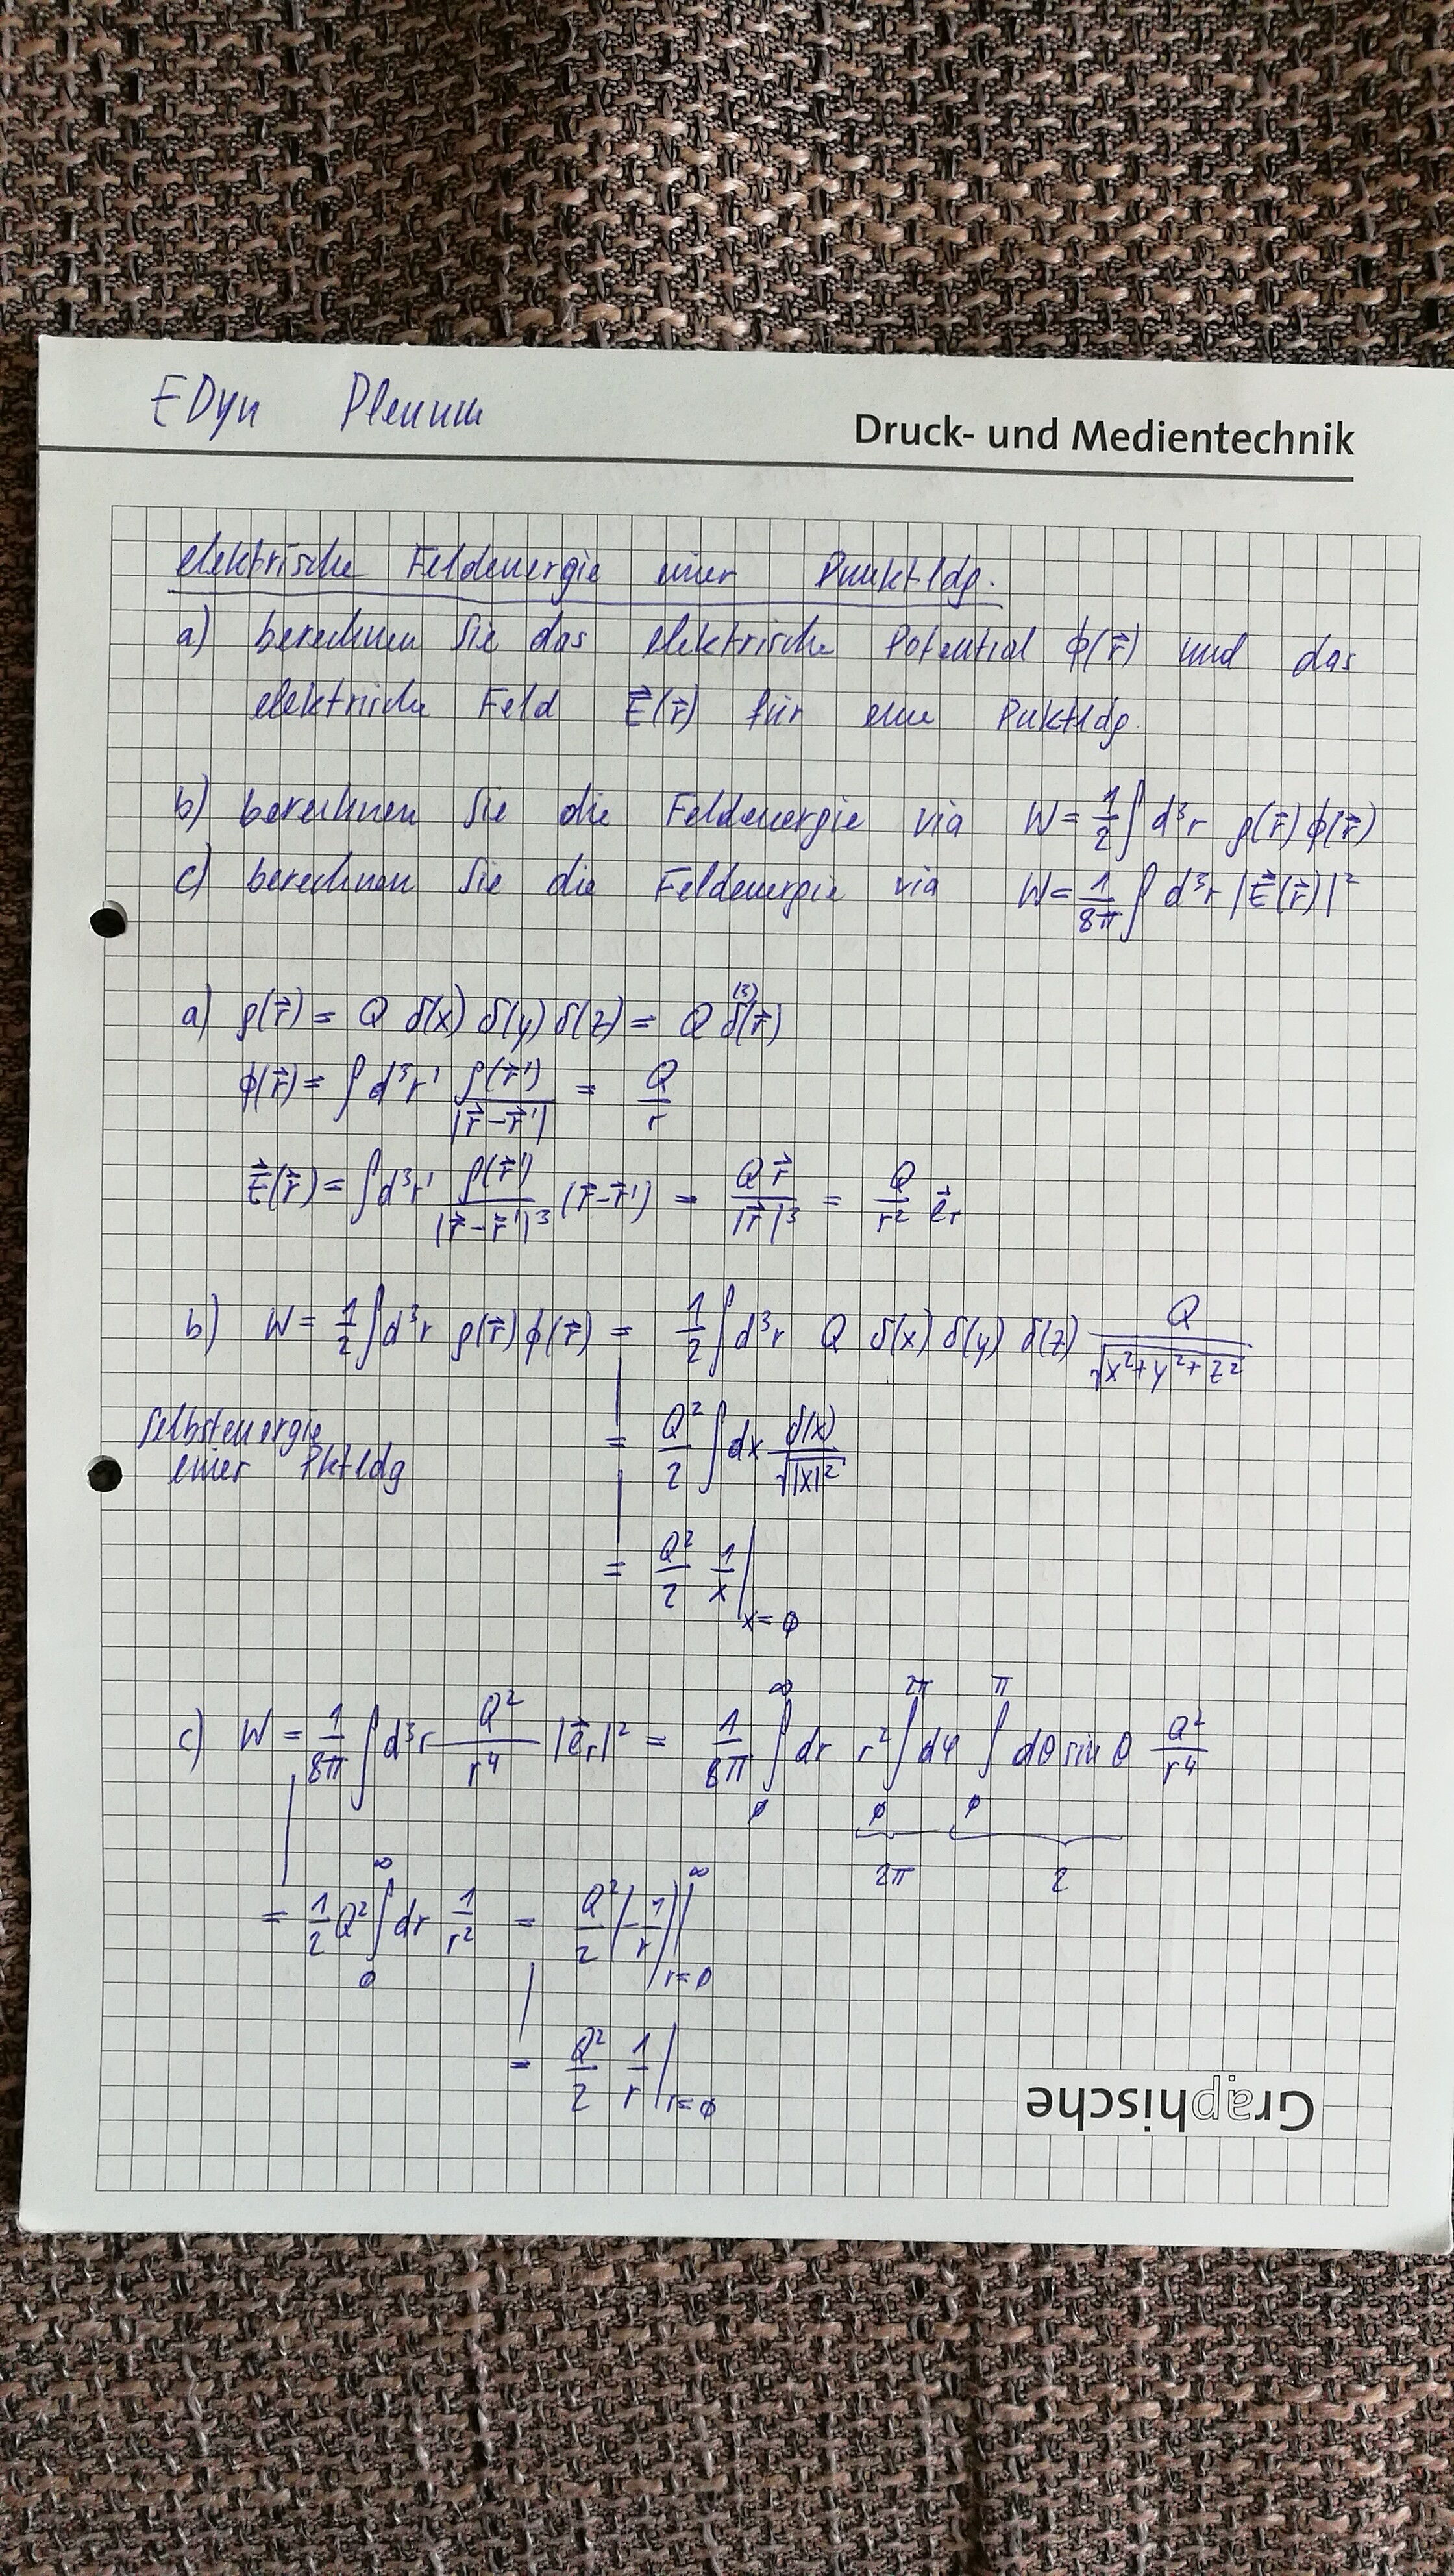 EDyn Plenum
Druck- und Medientechnik
elektrische Feldenergie einer Punktldg.
a) berechnen Sie das elektrische Potential ϕ(r⃗) und das
elektrische Feld E⃗(r⃗) für eine Puktldg.
b) berechnen Sie die Feldenergie via W = 1/2 ∫ d³r ρ(r⃗) ϕ(r⃗)
c) berechnen Sie die Feldenergie via W = 1/8π ∫ d³r |E⃗(r⃗)|²
a) ρ(r⃗) = Q δ(x) δ(y) δ(z) = Q δ⁽³⁾(r⃗)
ϕ(r⃗) = ∫ d³r' ρ(r⃗')/|r⃗-r⃗'| = Q/r
E⃗(r⃗) = ∫ d³r' ρ(r⃗')/|r⃗-r⃗'|³ (r⃗-r⃗') = Q r⃗/|r⃗|³ = Q/r² e⃗r
b) W = 1/2 ∫ d³r ρ(r⃗) ϕ(r⃗) = 1/2 ∫ d³r Q δ(x) δ(y) δ(z) Q/√(x²+y²+z²)
Selbstenergie
einer Pktldg
= Q²/2 ∫ dx δ(x)/√|x|²
= Q²/2 1/x |x=0
c) W = 1/8π ∫ d³r Q²/r⁴ |e⃗r|² = 1/8π ∫₀^∞ dr r² ∫₀^2π dφ ∫₀^π dθ sin θ Q²/r⁴
2π 2
= 1/2 Q² ∫₀^∞ dr 1/r² = Q²/2 (-1/r) |r=0^∞
= Q²/2 1/r |r=0
Graphische